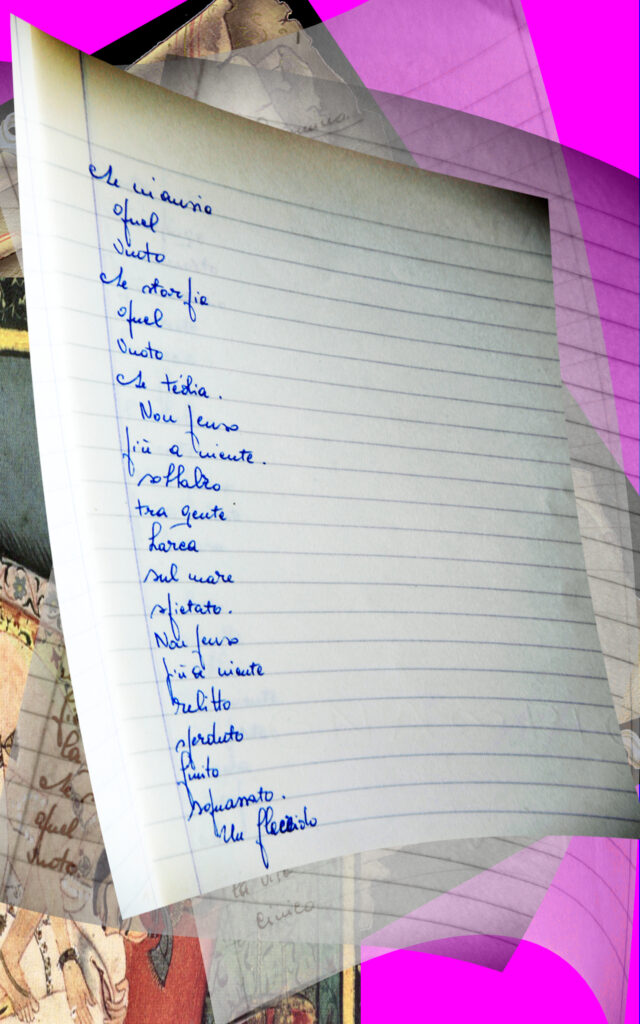 Che
Quel
vuoto
che storpia
Quel
vuoto
che tedia.
Non penso
più a niente.
sobbalzo
tra gente
barca
sul mare
spietato.
Non penso
più a niente
relitto
sperduto
finito
squassato.
Un flaccido
quel
vuoto.
la vita